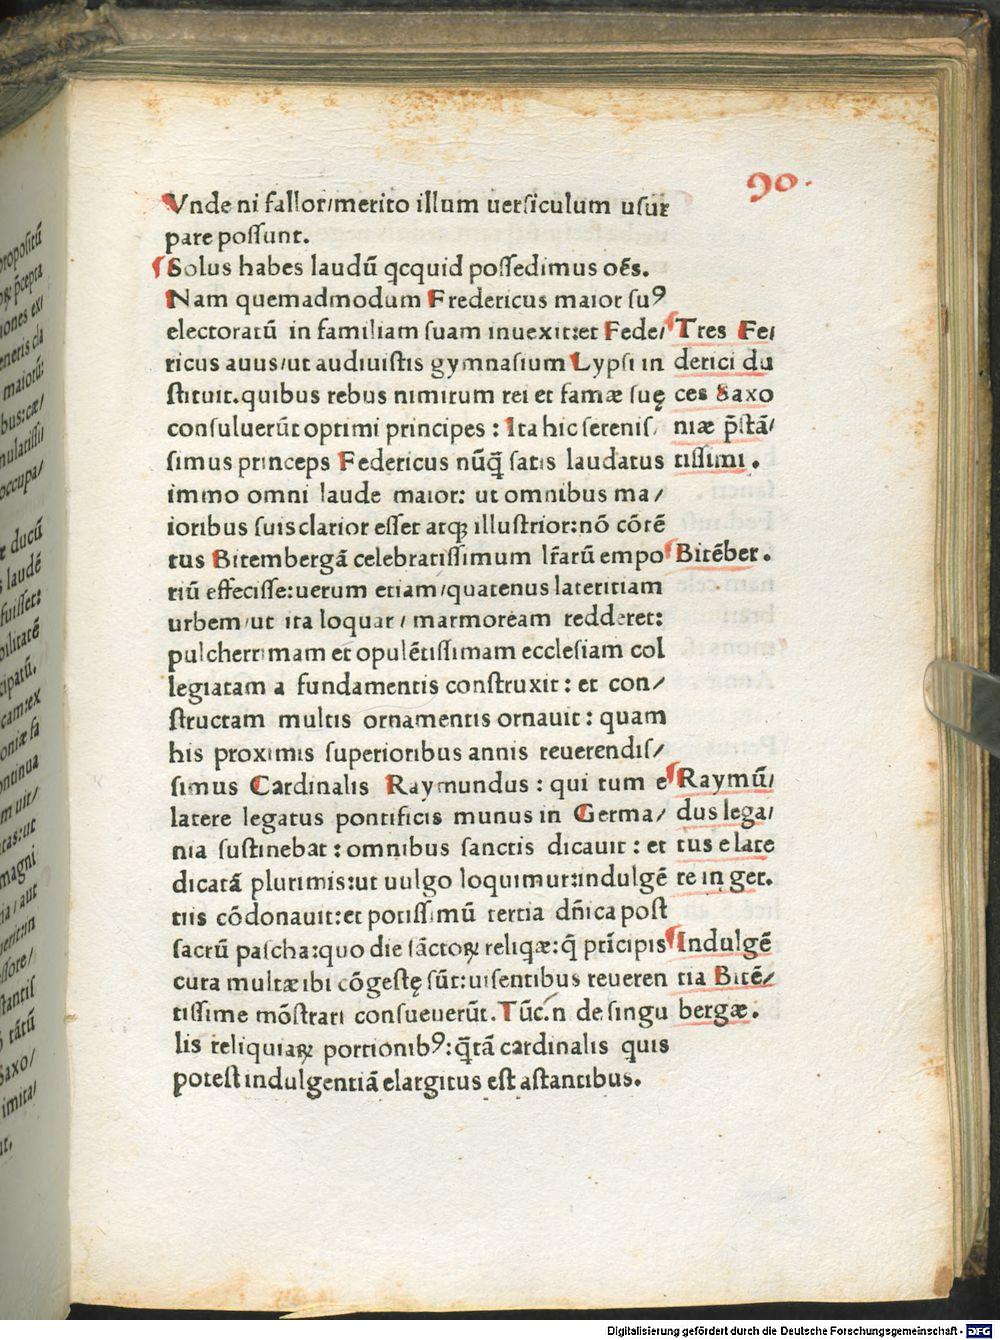 90.
Vnde ni fallor/merito illum uersiculum usur
pare possunt.
Solus habes laudū qcquid possedimus oēs.
Nam quemadmodum Fredericus maior suꝰ
electoratū in familiam suam inuexit:et Fede/
ricus auus/ut audiuistis gymnasium Lypsi in
stituit.quibus rebus nimirum rei et famæ suę
consuluerūt optimi principes : Ita hic serenis/
simus princeps Federicus nūq̄ satis laudatus
immo omni laude maior: ut omnibus ma/
ioribus suis clarior esset atqꝫ illustrior:nō cōtē
tus Bitembergā celebratissimum lr̄arū empo
riū effecisse:uerum etiam/quatenus lateritiam
urbem/ut ita loquar/marmoream redderet:
pulcherrimam et opulētissimam ecclesiam col
legiatam a fundamentis construxit: et con/
structam multis ornamentis ornauit: quam
his proximis superioribus annis reuerendis/
simus Cardinalis Raymundus : qui tum e
latere legatus pontificis munus in Germa/
nia sustinebat : omnibus sanctis dicauit : et
dicatā plurimis:ut uulgo loquimur:indulgē
tiis cōdonauit:et potissimū tertia dn̄ica post
sacrū pascha:quo die sāctoꝝ reliqæ:q̄ prīcipis
cura multæ ibi cōgestę sūt:uisentibus reueren
tissime mōstrari consueuerūt. Tūc.n de singu
lis reliquiaꝝ portionibꝰ:q̄tā cardinalis quis
potest indulgentiā elargitus est astantibus.
Tres Fe/
derici du
ces Saxo
niæ p̄stā/
tissimi.
Bitēber.
Raymū/
dus lega/
tus e late
re in ger.
Indulgē
tia Bitē/
bergæ.
Digitalisierung gefördert durch die Deutsche Forschungsgemeinschaft - DFG